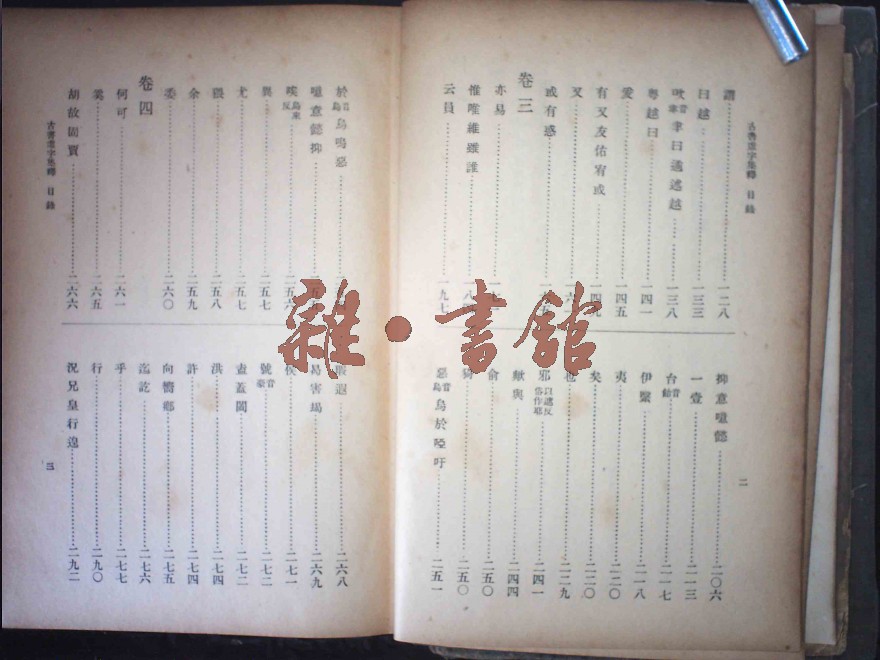 古書虛字集釋 目錄
謂 一二八
曰越 一三三
欥音聿聿曰遹述越 一三八
粵越曰 一四一
爰 一四五
有又友佑宥或
又
卷三
或有惑
亦易
惟唯維雖誰
云員 一九七
二
抑意噫懿 二〇六
一壹 二一三
台音飴 二一七
伊繄 二一八
夷 二二〇
矣 二二〇
也 二二九
邪以遮反俗作耶 二四一
歟與 二四四
俞 二五〇
猗 二五〇
惡音烏烏於啞吁 二五一
於音烏烏嗚惡
噫意懿抑
唉烏來反
異 二五七
尤 二五七
猥 二五八
余 二五九
委 二六〇
卷四
何可 二六一
奚 二六五
胡故固賈 二六六
古書虛字集釋 目錄
遐 二六八
曷害曷 二六九
侯 二七一
號音豪 二七二
盍蓋闔 二七二
洪 二七四
許 二七四
向嚮鄉 二七五
迄訖 二七六
乎 二七七
行 二九〇
況兄皇行遑 二九二
三
雜·書館